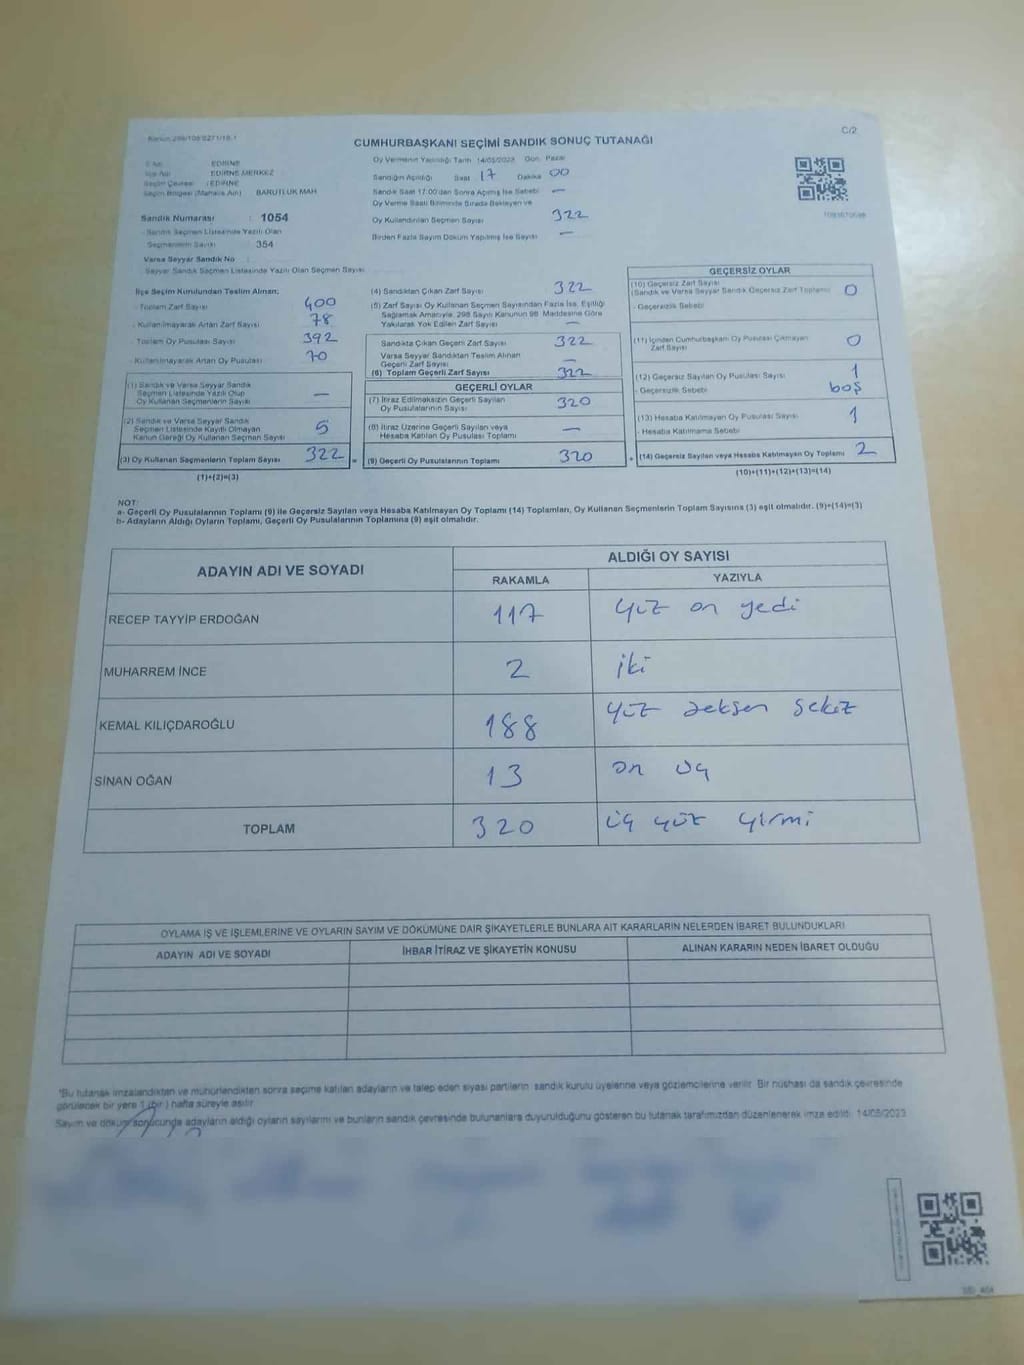 C/2
CUMHURBAŞKANI SEÇİMİ SANDIK SONUÇ TUTANAĞI
EDİRNE
EDİRNE MERKEZ
EDİRNE
BARUTLUK MAH
Sandık Numarası : 1054
Sandık Seçmen Listesinde Yazılı Olan
Seçmenlerin Sayısı 354
Varsa Seyyar Sandık No
Seyyar Sandık Seçmen Listesinde Yazılı Olan Seçmen Sayısı
Oy Vermenin Yapıldığı Tarih 14/05/2023 Gün Pazar
Sandığın Açıldığı Saat 17 Dakika 00
Sandık Saat 17:00'den Sonra Açılmış İse Sebebi —
Oy Verme Saati Bitiminde Sırada Bekleyen ve
Oy Kullandırılan Seçmen Sayısı 322
Birden Fazla Sayım Döküm Yapılmış İse Sayısı —
İlçe Seçim Kurulundan Teslim Alınan;
- Toplam Zarf Sayısı 400
- Kullanılmayarak Artan Zarf Sayısı 78
- Toplam Oy Pusulası Sayısı 392
- Kullanılmayarak Artan Oy Pusulası 70
(1) Sandık ve Varsa Seyyar Sandık
Seçmen Listesinde Yazılı Olup
Oy Kullanan Seçmenlerin Sayısı —
(2) Sandık ve Varsa Seyyar Sandık
Seçmen Listesinde Kayıtlı Olmayan
Kanun Gereği Oy Kullanan Seçmen Sayısı 5
(3) Oy Kullanan Seçmenlerin Toplam Sayısı 322
(1)+(2)=(3)
(4) Sandıktan Çıkan Zarf Sayısı 322
(5) Zarf Sayısı Oy Kullanan Seçmen Sayısından Fazla İse, Eşitliği
Sağlamak Amacıyla, 298 Sayılı Kanunun 98. Maddesine Göre
Yakılarak Yok Edilen Zarf Sayısı —
Sandıkta Çıkan Geçerli Zarf Sayısı 322
Varsa Seyyar Sandıktan Teslim Alınan
Geçerli Zarf Sayısı —
(6) Toplam Geçerli Zarf Sayısı 322
GEÇERLİ OYLAR
(7) İtiraz Edilmeksizin Geçerli Sayılan
Oy Pusulalarının Sayısı 320
(8) İtiraz Üzerine Geçerli Sayılan veya
Hesaba Katılan Oy Pusulası Toplamı —
= (9) Geçerli Oy Pusulalarının Toplamı 320
GEÇERSİZ OYLAR
(10) Geçersiz Zarf Sayısı
(Sandık ve Varsa Seyyar Sandık Geçersiz Zarf Toplamı) 0
- Geçersizlik Sebebi
(11) İçinden Cumhurbaşkanı Oy Pusulası Çıkmayan
Zarf Sayısı 0
(12) Geçersiz Sayılan Oy Pusulası Sayısı 1
- Geçersizlik Sebebi boş
(13) Hesaba Katılmayan Oy Pusulası Sayısı 1
- Hesaba Katılmama Sebebi
+ (14) Geçersiz Sayılan veya Hesaba Katılmayan Oy Toplamı 2
(10)+(11)+(12)+(13)=(14)
NOT:
a- Geçerli Oy Pusulaları Toplamı (9) ile Geçersiz Sayılan veya Hesaba Katılmayan Oy Toplamı (14) Toplamları, Oy Kullanan Seçmenlerin Toplam Sayısına (3) eşit olmalıdır. (9)+(14)=(3)
b- Adayların Aldığı Oyların Toplamı, Geçerli Oy Pusulalarının Toplamına (9) eşit olmalıdır.
ADAYIN ADI VE SOYADI ALDIĞI OY SAYISI
RAKAMLA YAZIYLA
RECEP TAYYİP ERDOĞAN 117 yüz on yedi
MUHARREM İNCE 2 iki
KEMAL KILIÇDAROĞLU 188 yüz seksen sekiz
SİNAN OĞAN 13 on üç
TOPLAM 320 üç yüz yirmi
OYLAMA İŞ VE İŞLEMLERİNE VE OYLARIN SAYIM VE DÖKÜMÜNE DAİR ŞİKAYETLERLE BUNLARA AİT KARARLARIN NELERDEN İBARET BULUNDUKLARI
ADAYIN ADI VE SOYADI İHBAR İTİRAZ VE ŞİKAYETİN KONUSU ALINAN KARARIN NEDEN İBARET OLDUĞU
*Bu tutanak imzalandıktan ve mühürlendikten sonra seçime katılan adayların ve talep eden siyasi partilerin sandık kurulu üyelerine veya gözlemcilerine verilir. Bir nüshası da sandık çevresinde
görülecek bir yere 1 (bir) hafta süreyle asılır.
Sayım ve döküm sonucunda adayların aldığı oyların sayılarını ve bunların sandık çevresinde bulunanlara duyurulduğunu gösteren bu tutanak tarafımızdan düzenlenerek imza edildi. 14/05/2023